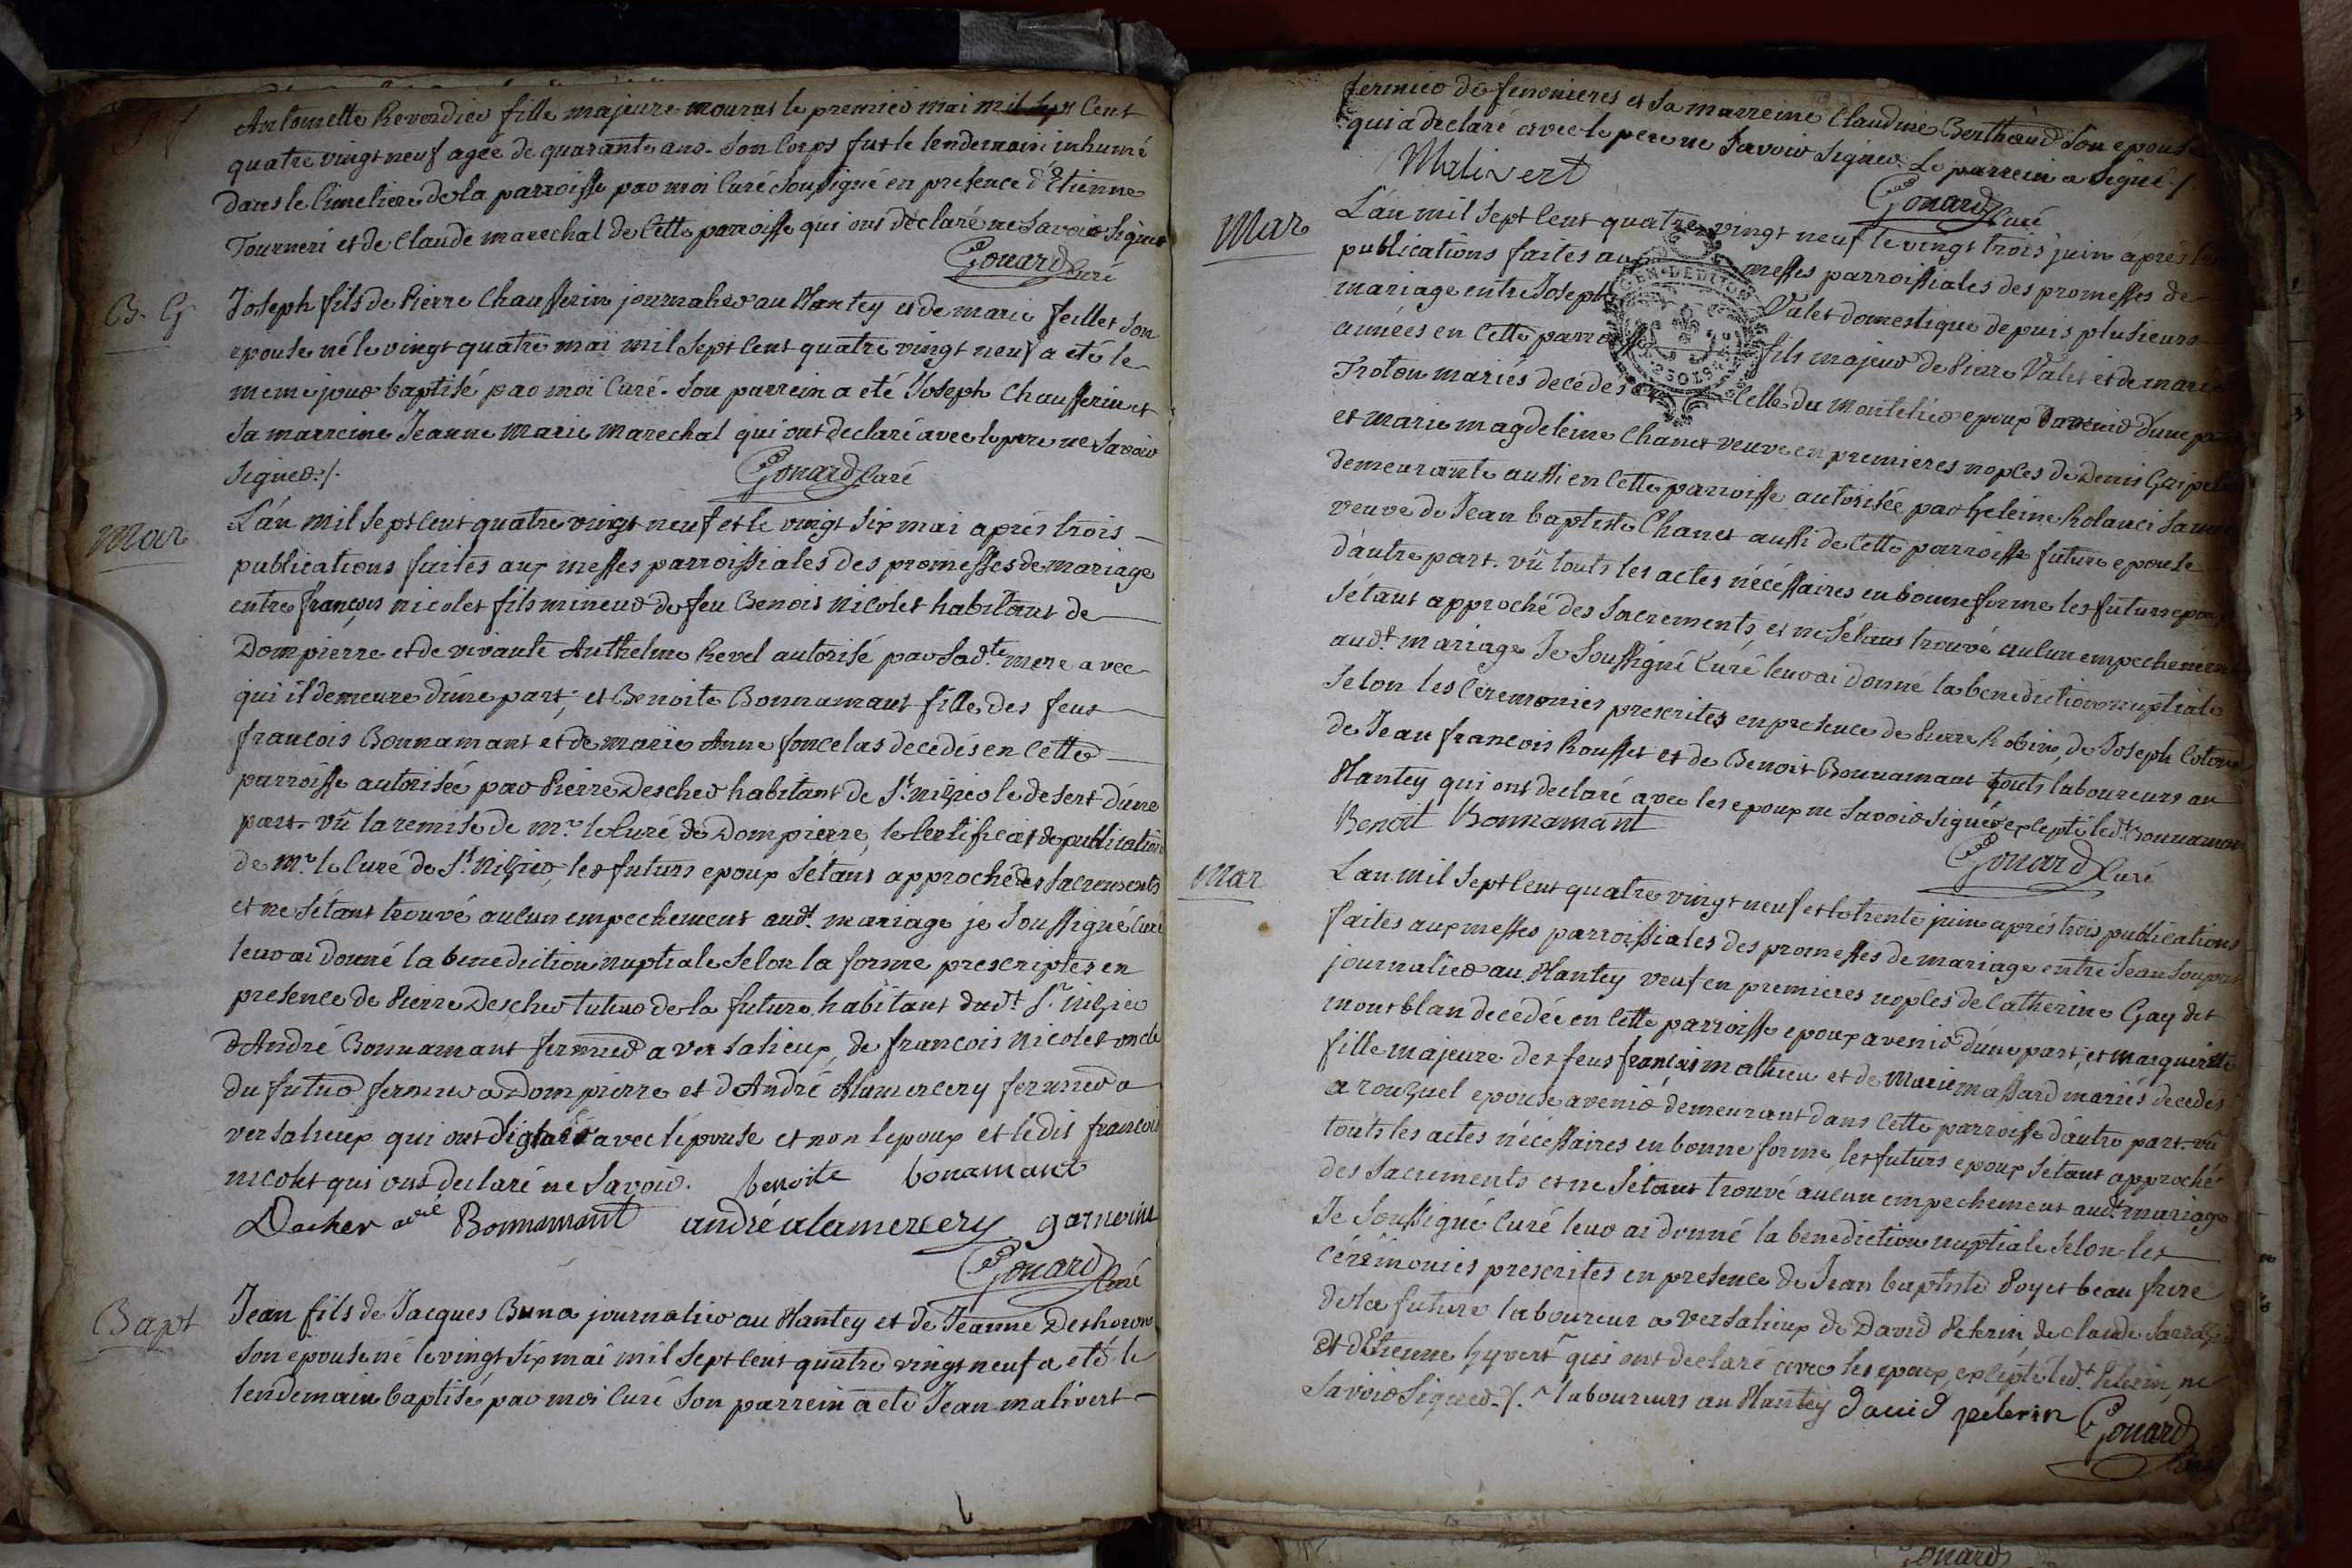 Antoinette Reverdier fille majeure mourut le premier mai mil sept cent
quatre vingt neuf agée de quarante ans. Son corps fut le lendemain inhumé
dans le cimetiere de la parroisse par moi curé soussigné en presence d'Etienne
Tourneri et de Claude marechal de cette parroisse qui ont déclaré ne savoir signer
Gouard curé
B. G
Joseph fils de Pierre Chausserin journalier au Plantey et de marie feillet son
epouse né le vingt quatre mai mil sept cent quatre vingt neuf a eté le
meme jour baptisé par moi curé. Son parrein a eté Joseph Chausserin et
sa marreine Jeanne Marie marechal qui ont declaré avec le pere ne savoir
signer ./.
Gouard curé
Mar
L'an mil sept cent quatre vingt neuf et le vingt six mai aprés trois
publications faites aux messes parroissiales des promesses de mariage
entre françois nicolet fils mineur de feu Benoit Nicolet habitant de
Dompierre et de vivante Anthelme Revel autorisé par sad.te mere avec
qui il demeure d'une part; et Benoite Bonnamant fille des feus
francois Bonnamant et de marie Anne foncelas decedés en cette
parroisse autorisée par Pierre Descher habitant de St nizier le desert d'une
part. vû la remise de mr. le Curé de Dompierre, le certificat de publication
de mr. le Curé de St. Nizier, les futurs epoux s'étant approché des sacrements
et ne s'étant trouvé aucun empechement audt. mariage je soussigné curé
leur ai donné la benediction nuptiale selon la forme prescriptes en
presence de Pierre Descher tuteur de la future habitant dudt St. Nizier
d'André Bonnamant fermier a versalieux, de francois Nicolet oncle
du futur fermier a Dompierre et d'André Alamercery fermier a
versalieux qui ont signé avec l'épouse et non l'epoux et ledit francois
nicolet qui ont declaré ne savoir. benoite bonamant
Decher Bonnamant andré alamercery garnoin
Gouard curé
Bapt
Jean fils de Jacques Buna journalier au Plantey et de Jeanne
son epouse né le vingt six mai mil sept cent quatre vingt neuf a eté le
lendemain baptisé par moi curé son parrein a eté Jean malivert
fermier de fenonieres et sa marreine Claudine Berthaud son epouse
qui a declaré avec le pere ne savoir signer. Le parrein a signé ./.
Malivert
Gouard curé
Mar
L'an mil sept cent quatre vingt neuf le vingt trois juin aprés
publications faites aux messes parroissiales des promesses de
mariage entre Joseph Valet domestique depuis plusieurs
années en cette parroisse fils majeur de Pierre Valet et de marie
Troton mariés decedés en celle du Montelier epoux a avenir d'une part
et marie magdeleine Chanet veuve en premieres noples de Denis
demeurante aussi en cette parroisse autorisée par heleine
veuve de Jean baptiste Chanet aussi de cette parroisse future epouse
d'autre part. vû touts les actes nécéssaires en bonne forme les futurs epoux
s'étant approché des sacrements, et ne s'étant trouvé aucun empechement
audt. mariage Je soussigné curé leur ai donné la benediction nuptiale
selon les ceremonies prescrites en presence de Pierre Robin, de Joseph
de Jean francois Rousset et de Benoit Bonnamant touts laboureurs au
Plantey qui ont declaré avec les epoux ne savoir signer excepté ledt Bonnamant
Benoit Bonnamant
Gouard curé
Mar
L'an mil sept cent quatre vingt neuf et le trente juin aprés trois publications
faites aux messes parroissiales des promesses de mariage entre Jean
journalier au Plantey veuf en premieres noples de Catherine Gay dit
montblan decedée en cette parroisse epoux a venir d'une part; et marguerite
fille majeure des feus francois mathieu et de Marie massard mariés decedés
a epouse a venir demeurant dans cette parroisse d'autre part. vû
touts les actes nécéssaires en bonne forme, les futurs epoux s'étant approché
des sacrements et ne s'étant trouvé aucun empechement audt. mariage
Je soussigné curé leur ai donné la benediction nuptiale selon les
cérémonies prescrites en presence de Jean baptiste Poyet beau frere
de la future laboureur a versalieux de David Pelerin, de claude
et d'Etienne hyvert qui ont declaré avec les epoux, excepté ledt. Pelerin, ne
savoir signer ./. laboureurs au Plantey david pelerin Gouard
curé